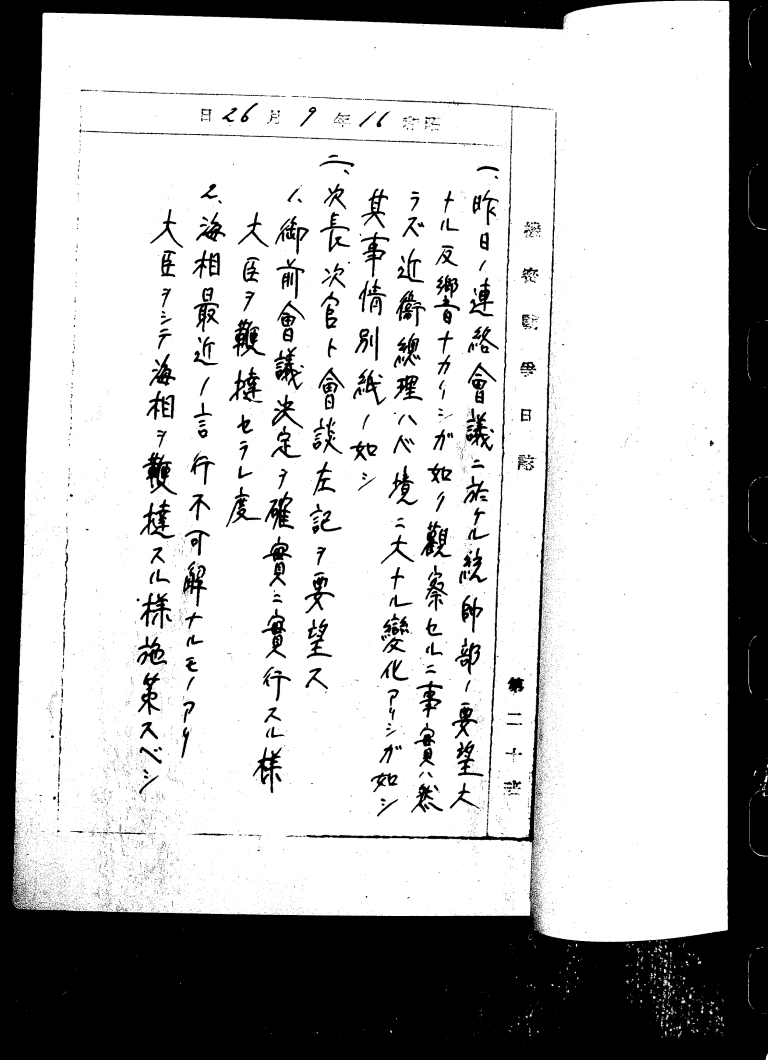 機密戰爭日誌
第二十班
昭和16年9月26日
一、昨日ノ連絡會議ニ於ケル統帥部ノ要望大
ナル反響ナカリシガ如ク觀察セルニ事實ハ然
ラズ近衞總理ハ心境ニ大ナル變化アリシガ如シ
其事情別紙ノ如シ
二、次長次官ト會談左記ヲ要望ス
1、御前會議決定ヲ確實ニ實行スル樣
大臣ヲ鞭撻セラレ度
2、海相最近ノ言行不可解ナルモノアリ
大臣ヲシテ海相ヲ鞭撻スル樣施策スベシ